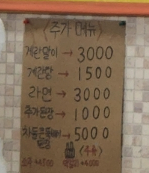 <추가 메뉴>
계란말이 → 3000
계란찜 → 1500
라면 → 3000
추가된장 → 1000
→ 5000
<주류>